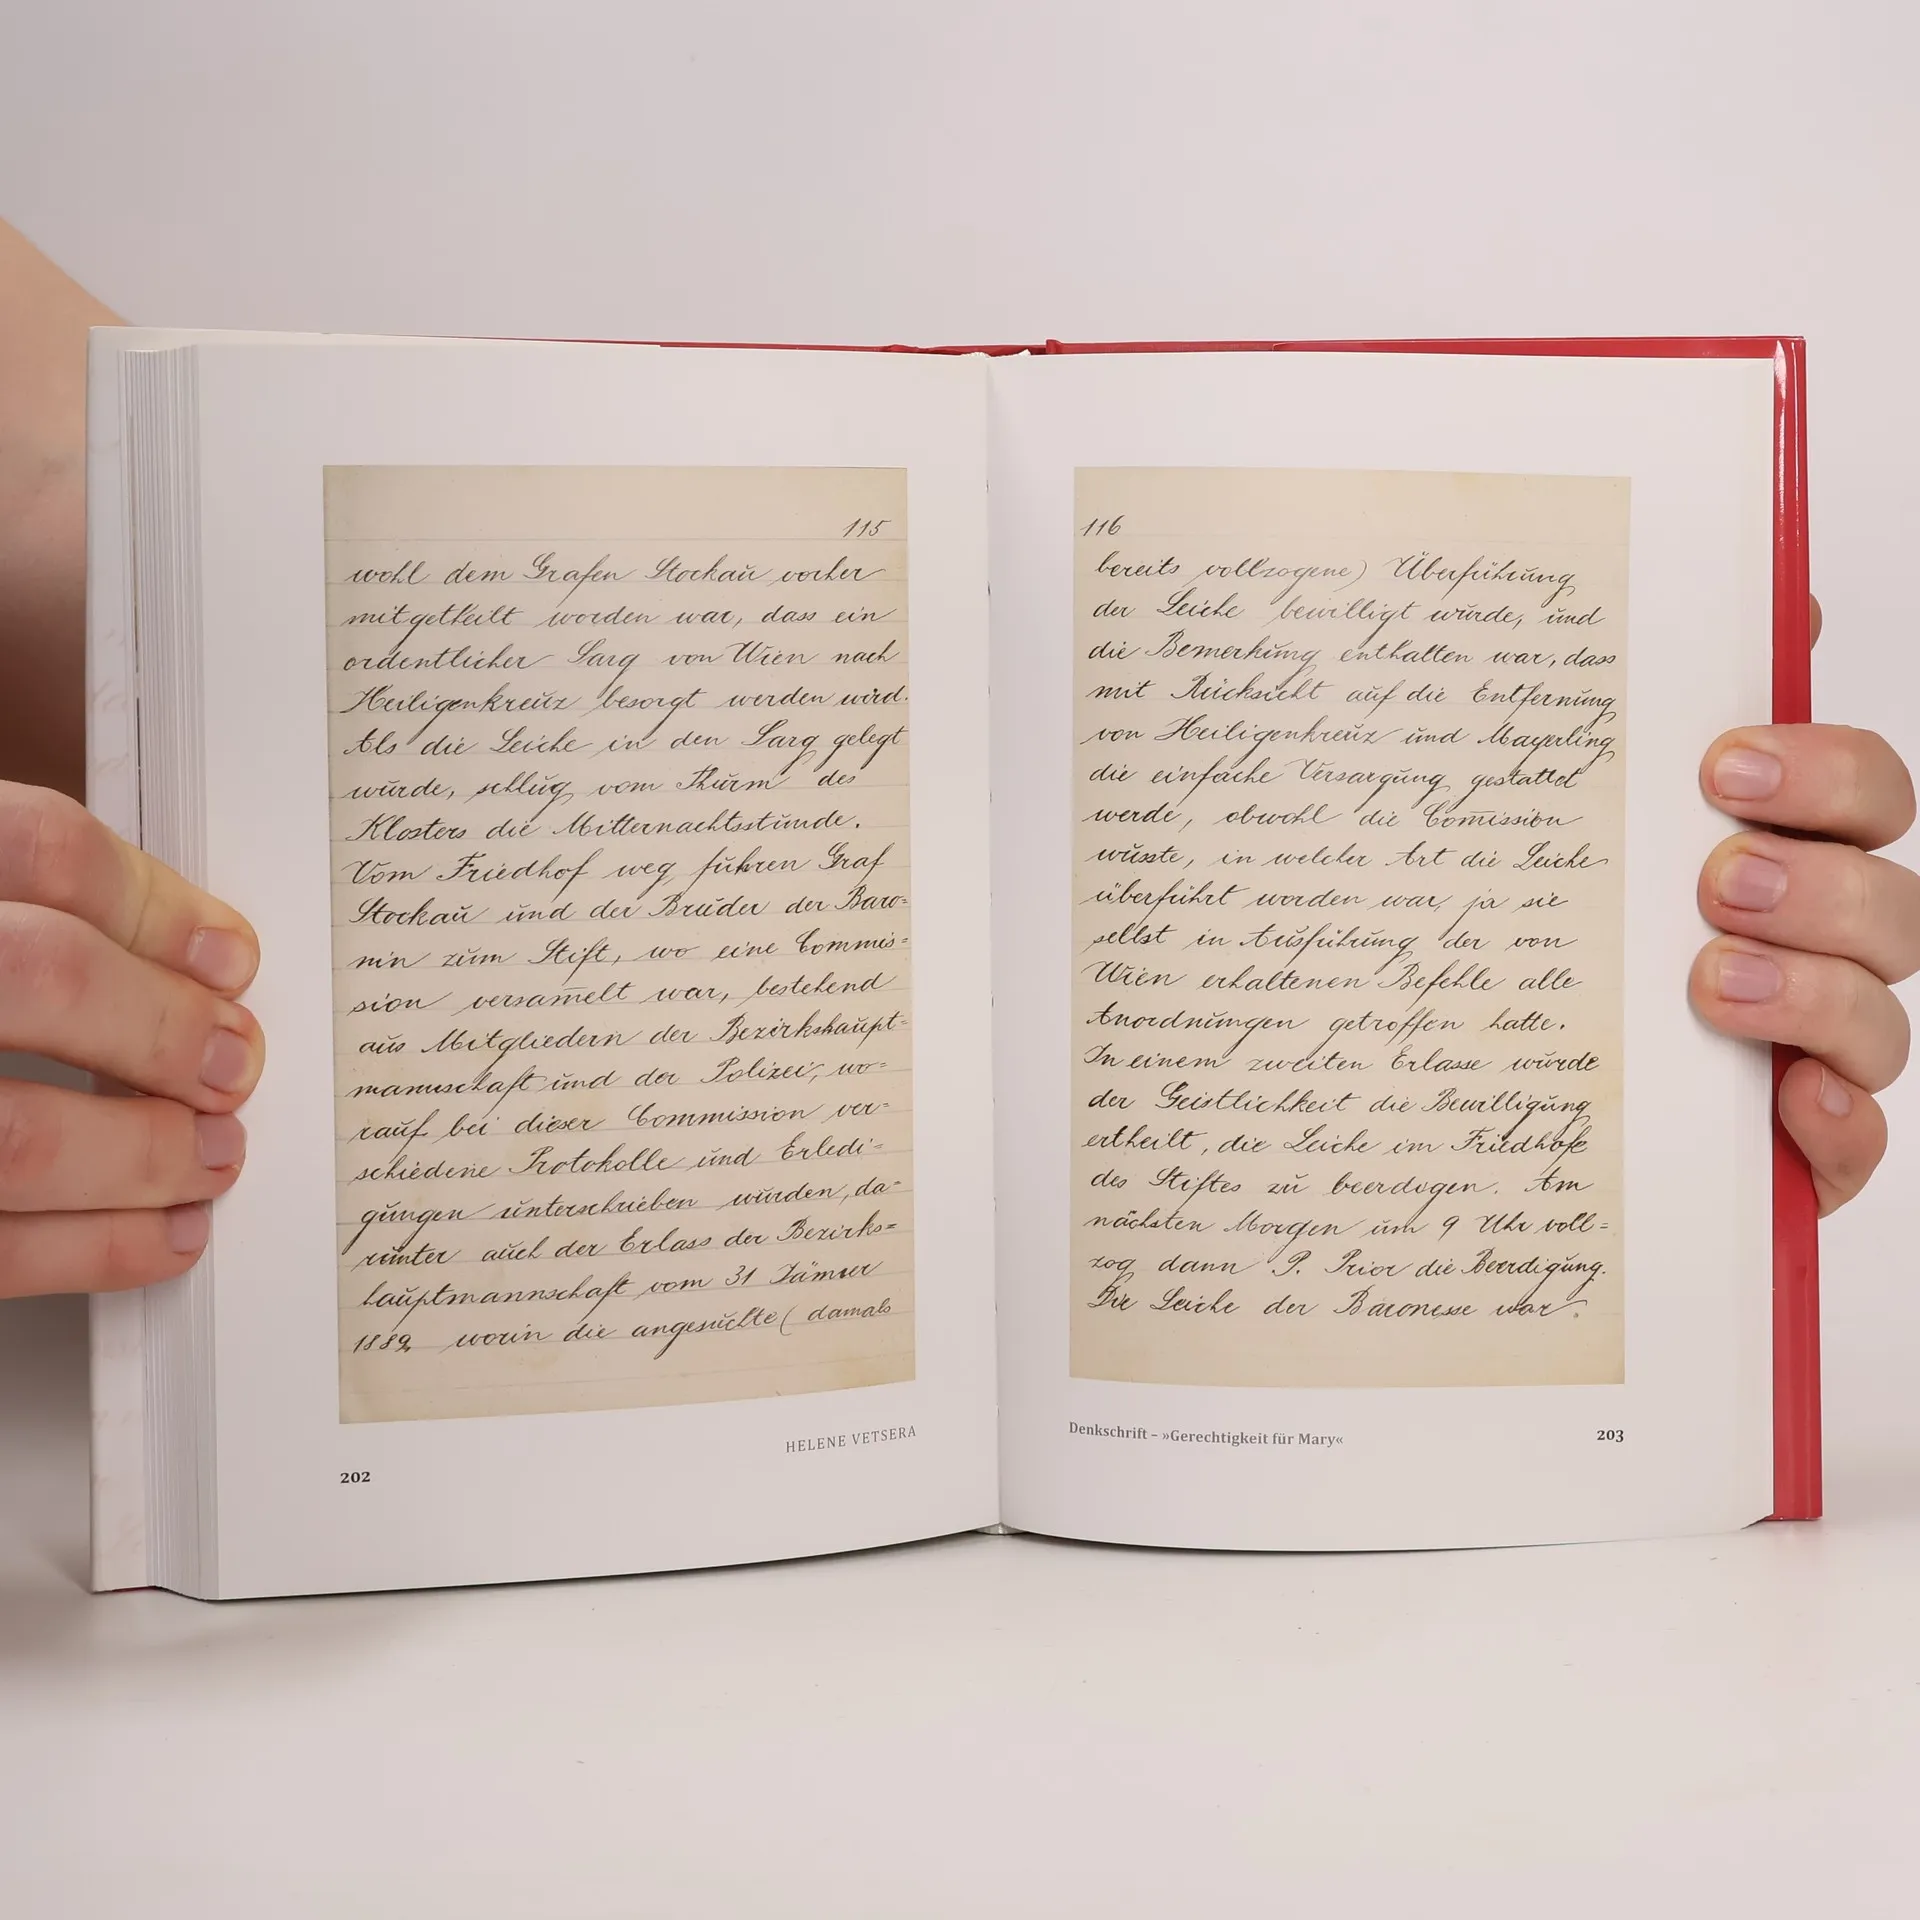 115
wohl dem Grafen Stockau vorher
mitgetheilt worden war, dass ein
ordentlicher Sarg von Wien nach
Heiligenkreuz besorgt werden wird.
Als die Leiche in den Sarg gelegt
wurde, schlug vom Thurm des
Klosters die Mitternachtsstunde.
Vom Friedhof weg, fuhren Graf
Stockau und der Bruder der Baro=
nin zum Stift, wo eine Commis=
sion versam̅elt war, bestehend
aus Mitgliedern der Bezirkshaupt=
mannschaft und der Polizei, wo=
rauf bei dieser Commission ver=
schiedene Protokolle und Erledi=
gungen unterschrieben wurden, da=
runter auch der Erlass der Bezirks=
hauptmannschaft vom 31 Jänner
1889, worin die angesuchte (damals
HELENE VETSERA
202
116
bereits vollzogene) Überführung
der Leiche bewilligt wurde, und
die Bemerkung enthalten war, dass
mit Rücksicht auf die Entfernung
von Heiligenkreuz und Mayerling
die einfache Versargung gestattet
werde, obwohl die Com̅ission
wusste, in welcher Art die Leiche
überführt worden war, ja sie
selbst in Ausführung der von
Wien erhaltenen Befehle alle
Anordnungen getroffen hatte.
In einem zweiten Erlasse wurde
der Geistlichkeit die Bewilligung
ertheilt, die Leiche im Friedhofe
des Stiftes zu beerdigen. Am
nächsten Morgen um 9 Uhr voll=
zog dann P. Prior die Beerdigung.
Die Leiche der Baronesse war
Denkschrift – »Gerechtigkeit für Mary«
203